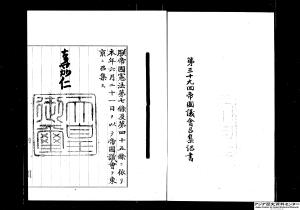 第三十九回帝國議會召集詔書
朕帝國憲法第七條及第四十五條ニ依リ
本年六月二十一日ヲ以テ帝國議會ヲ東
京ニ召集ス
嘉仁
天皇
御璽
アジア歴史資料センター